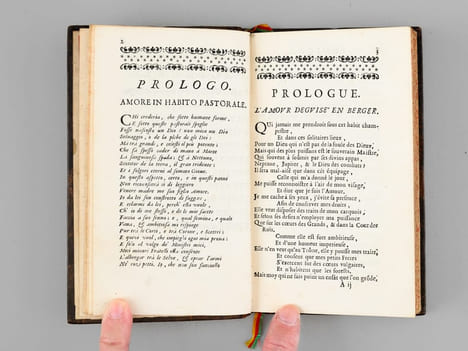 2
PROLOGO.
AMORE IN HABITO PASTORALE.
CHi crederia, che sotto humane forme,
E sotto queste pastorali spoglie
Fosse nascosto un Dio? non mica un Dio
Selvaggio, o de la plebe de gli Dei:
Ma tra grandi, e celesti il più potente:
Che fa spesso cader di mano a Marte
La sanguinosa spada; & a Nettuno,
Scotitor de la terra, il gran tridente:
Et i folgori eterni al sommo Giove.
In questo aspetto, certo, e in questi panni
Non riconoscerà sì di leggiero
Venere madre me suo figlio Amore.
Io da lei son constretto di fuggire,
E celarmi da lei, perch' ella vuole,
Ch' io di me stesso, e de le mie saette
Faccia a suo senno; e qual femina, e quale
Vana, & ambitiosa mi respinge
Pur tra le Corti, e tra Corone, e Scettri:
E quivi vuol, che impieghi ogni mia prova:
E solo al volgo de' Ministri miei,
Miei minori Fratelli ella consente
L'albergar tra le Selve, & oprar l'armi
Ne' rozi petti. Io, che non son fanciullo
3
PROLOGUE.
L'AMOUR DEGUISE' EN BERGER.
QUi jamais me prendroit sous cet habit champestre,
Et dans ces solitaires lieux,
Pour un Dieu qui n'est pas de la foule des Dieux,
Mais qui des plus puissans est le souverain Maistre,
Qui souvent à sostenir par ses divins appas,
Neptune, Jupiter, & le Dieu des combats?
Il sera mal-aisé que dans cét équipage,
Celle qui m'a donné le jour,
Me puisse reconnoistre à l'air de mon visage,
Et dise que je suis l'Amour.
Je me cache à ses yeux, j'évite sa presence,
Afin de conserver mes droits,
Elle veut disposer des traits de mon carquois,
Et selon ses desirs n'employer ma puissance
Que sur les cœurs des Grands, & dans la Cour des Rois.
Comme elle est fort ambitieuse,
Et d'une humeur imperieuse,
Elle n'en veut qu'au Trosne, elle y pousse mes traits,
Et confent que mes petits Freres
S'exercent sur des cœurs vulgaires,
Et n'habitent que les forests,
Mais moy qui ne fais point un enfant que l'on gronde,
A ij